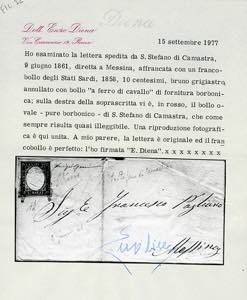 Diena
Dott. Enzo Diena
15 settembre 1977
Ho esaminato la lettera spedita da S. Stefano di Camastra,
9 giugno 1861, diretta a Messina, affrancata con un franco-
bollo degli Stati Sardi, 1858, 10 centesimi, bruno grigiastro,
annullato con bollo "a ferro di cavallo" di fornitura borboni-
ca; sulla destra della soprascritta vi è, in rosso, il bollo o-
vale - pure borbonico - di S. Stefano di Camastra, che come
sempre risulta quasi illeggibile. Una riproduzione fotografi-
ca è qui unita. A mio parere, la lettera è originale ed il fran
cobollo è perfetto: l'ho firmata "E. Diena". x x x x x x x x
Sig.r Francesco Pagliano
Messina